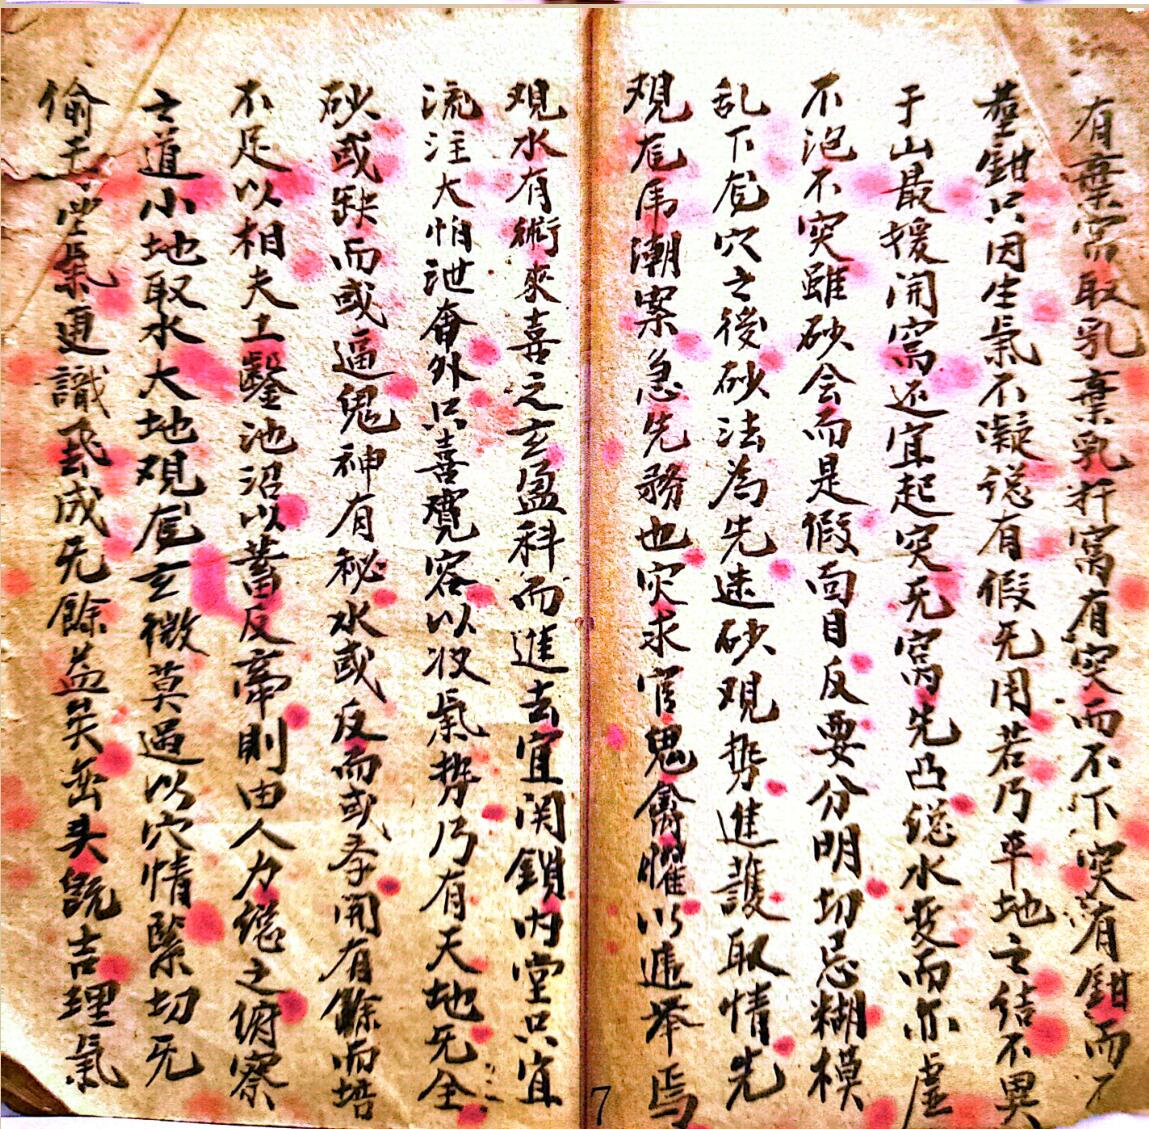 有棄窩取乳棄乳扦窩有突而不下突有鉗而不
塟鉗只因生氣不凝総有假无用若乃平地之结不異
于山最援開窩还宜起突无窩先凸総水变而亦虛
不泡不突雖砂会而是假面目反要分明切忌糊模
乱下尨穴之後砂法為先速砂观势進護取情先
观尨虎潮案急先務也穴求官鬼禽懼以進举焉
观水有術來喜之玄盈科而進去宜関鎖内堂只宜
流注大怕泄會外只喜寬容以收氣势乃有天地无全
砂或缺而或逼鬼神有秘水或反而或奔開有餘而培
不足以相夫土鑿池沼以蓄反牽則由人力総之俯察
之道小地取水大地观尨玄微莫過以穴情緊切无
偷于堂氣通識砝成无餘益矣峦头既吉理氣
7